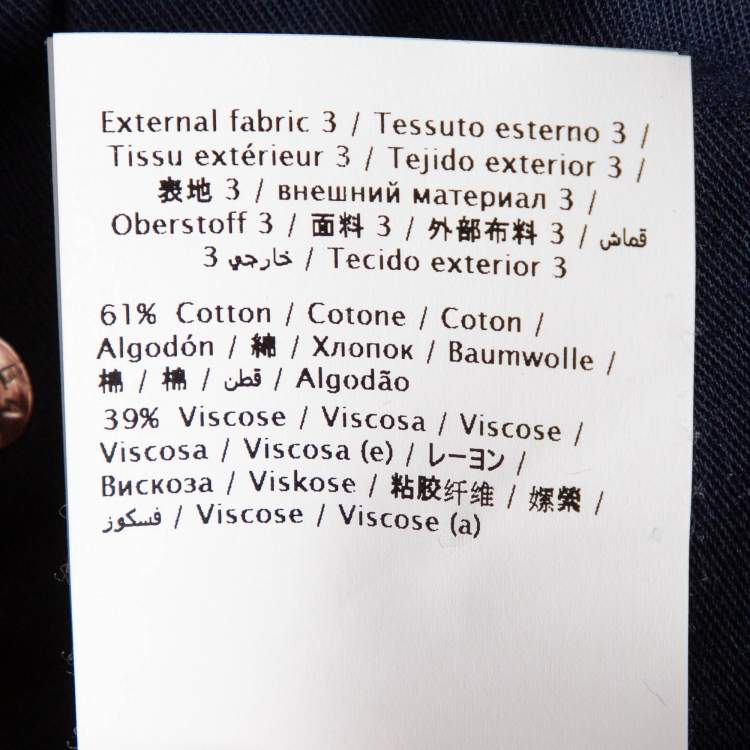 External fabric 3 / Tessuto esterno 3 /
Tissu extérieur 3 / Tejido exterior 3 /
表地 3 / внешний материал 3 /
Oberstoff 3 / 面料 3 / 外部布料 3 / قماش
خارجي 3 / Tecido exterior 3
61% Cotton / Cotone / Coton /
Algodón / 綿 / Хлопок / Baumwolle /
棉 / 棉 / قطن / Algodão
39% Viscose / Viscosa / Viscose /
Viscosa / Viscosa (e) / レーヨン /
Вискоза / Viskose / 粘胶纤维 / 嫘縈 /
فسكوز / Viscose / Viscose (a)